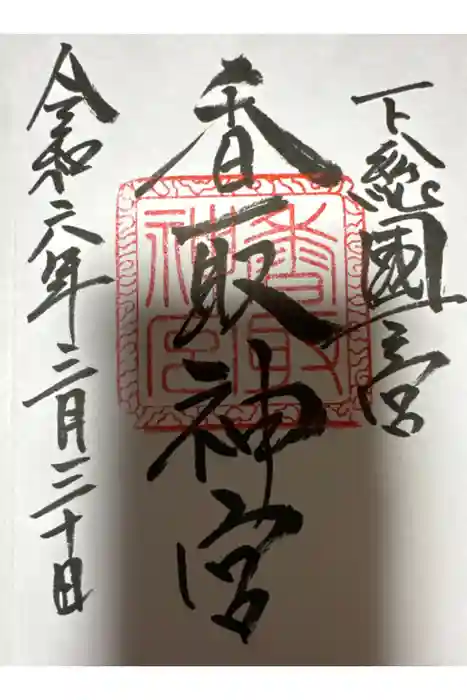 下総國一之宮
香取神宮
香取神宮
令和六年三月三十日